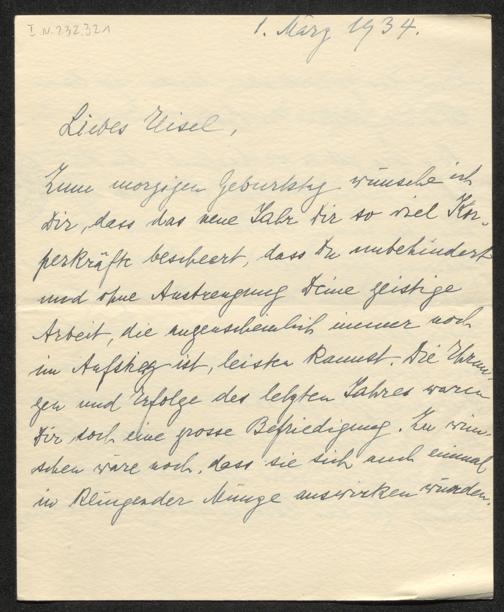 I.N. 232.321
1. März 1934.
Liebes Uisel,
Zum morgigen Geburtstag wünsche ich
Dir, dass das neue Jahr Dir so viel Kör-
perkräfte bescheert, dass Du unbehindert
und ohne Anstrengung Deine geistige
Arbeit, die augenscheinlich immer noch
im Aufstieg ist, leisten kannst. Die Ehrun-
gen und Erfolge des letzten Jahres waren
Dir doch eine grosse Befriedigung. Zu wün-
schen wäre noch, dass sie sich auch einmal
in klingender Münze auswirken würden.